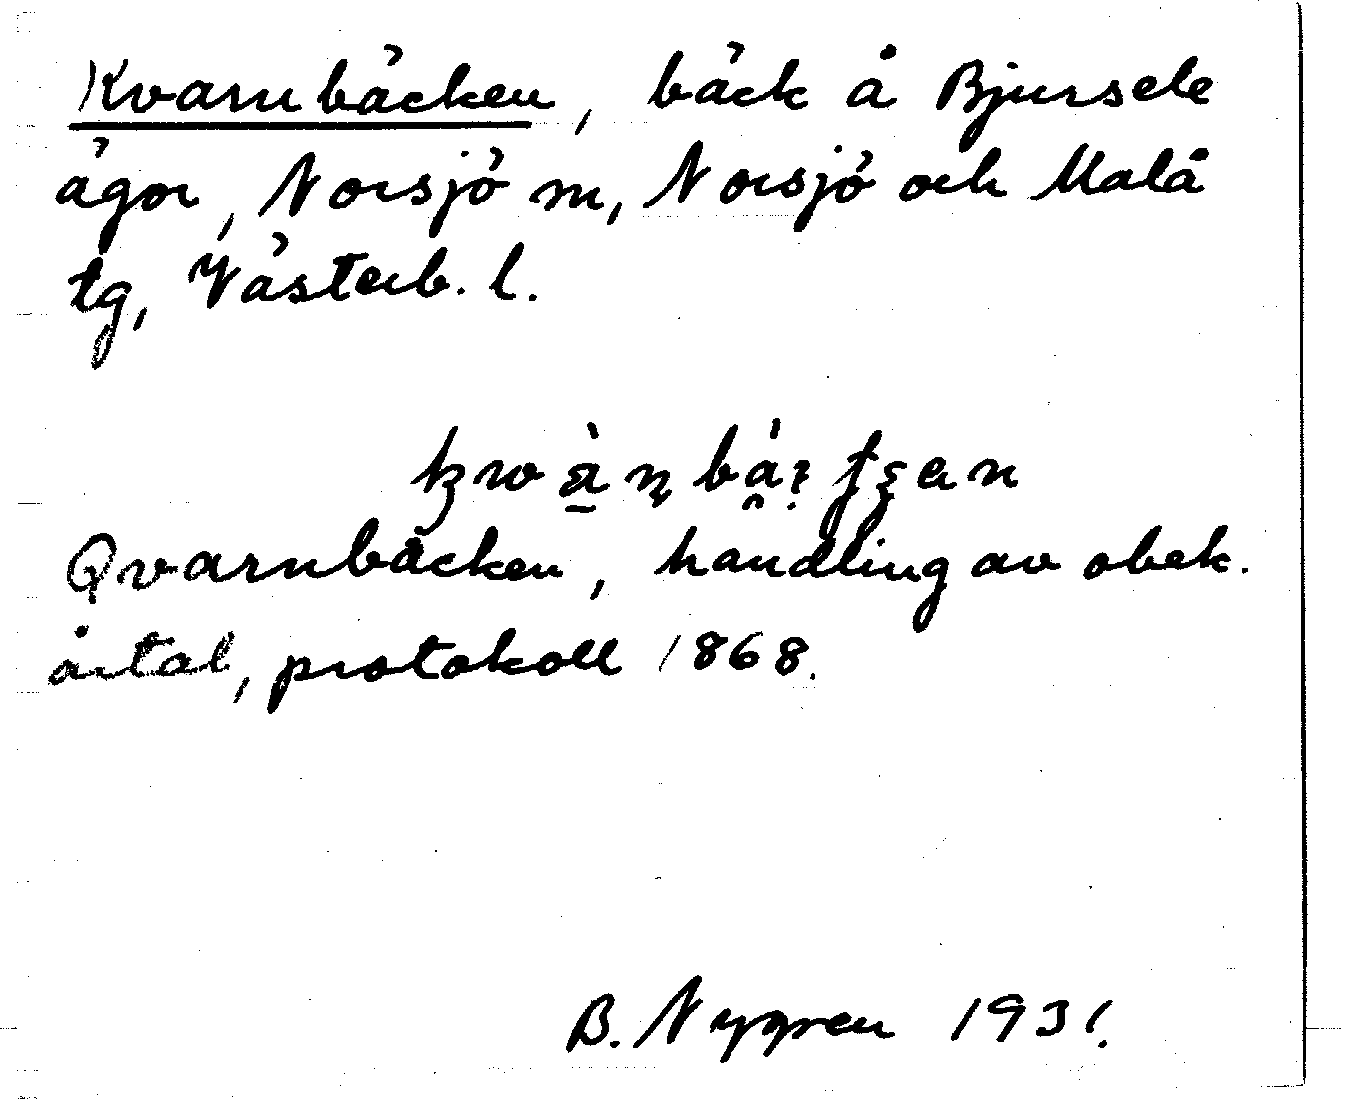 Kvarnbäcken, bäck å Bjursele
ägor, Norsjö sn, Norsjö och Malå
tg, Västerb. l.
Qvarnbäcken, handling av obek.
årtal, protokoll 1868.
B. Nygren 1931.